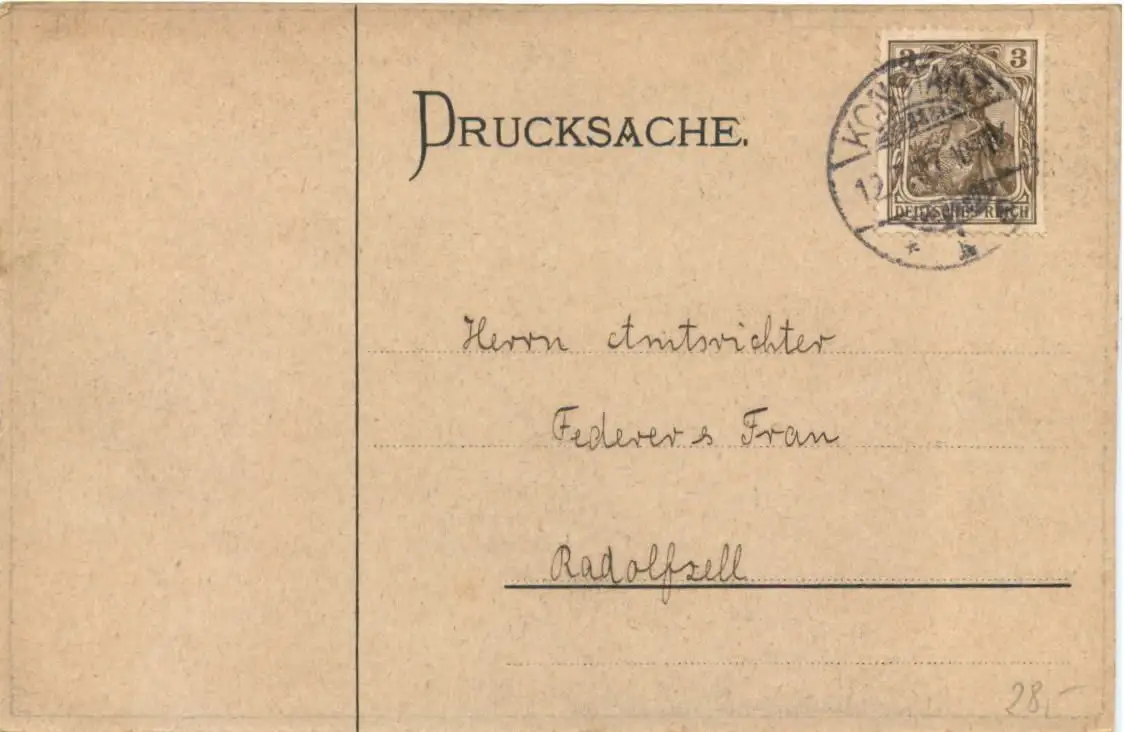 DRUCKSACHE.
3 3
DEUTSCHES REICH
Herrn Amtsrichter
Federer & Frau
Radolfzell
28,-